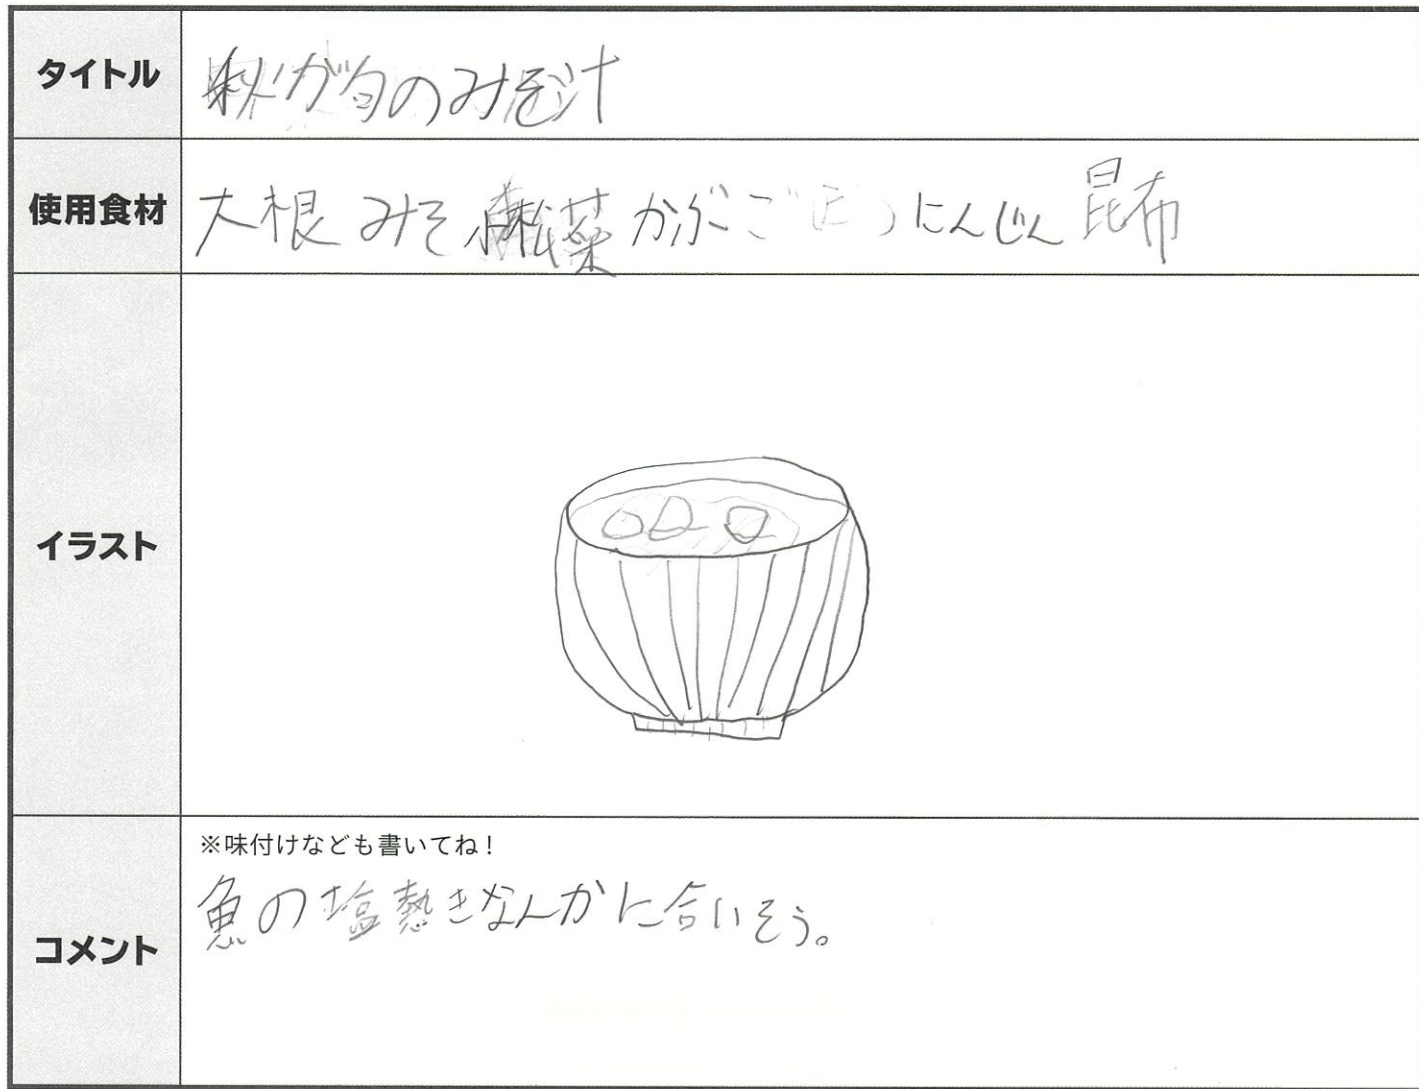 タイトル
秋が旬のみそ汁
使用食材
大根 みそ 小松菜 かぶ ごぼう にんじん 昆布
イラスト
コメント
※味付けなども書いてね！
魚の塩熱きなんかに合いそう。